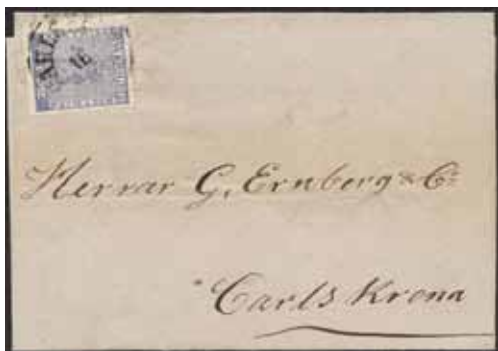 16
Herrar G. Ernberg & Co
Carls Krona